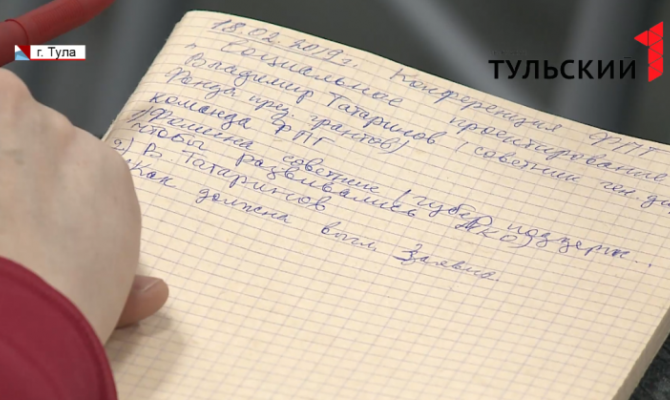 г. Тула
ТУЛЬСКИЙ 1
18.02.2019г. Конференция ФПГ
"Социальное проектирование
Владимир Татаринов (советник ген. ди
Фонда през. грантов)
команда ФПГ
1) Фомина советник (губер поддерж..
чтобы развивались НКО)
2) В. Татаринов
Как должна выгл. Заявка.